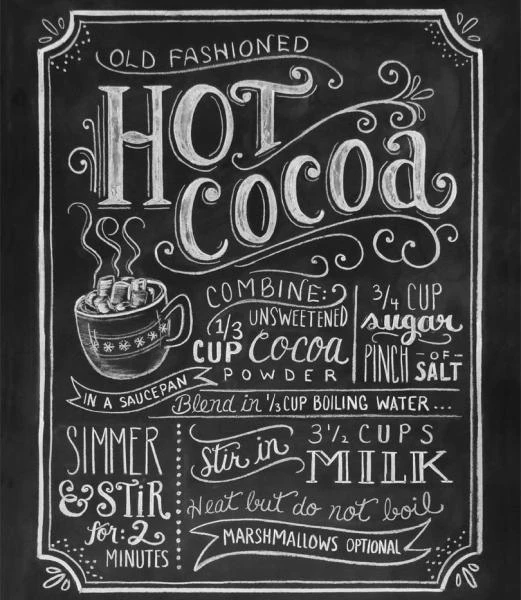 OLD FASHIONED
HOT
COCOA
COMBINE:
1/3 CUP
UNSWEETENED
Cocoa
POWDER
3/4 CUP
sugar
PINCH -OF- SALT
IN A SAUCEPAN
Blend in 1/3 CUP BOILING WATER...
SIMMER
& STIR
for: 2
MINUTES
Stir in
3 1/2 CUPS
MILK
Heat but do not boil
MARSHMALLOWS OPTIONAL